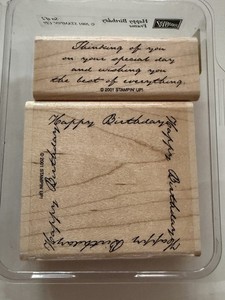 Happy Birthday
Frame
© 2001 STAMPIN' UP!
Set of 2
Thinking of you
on your special day
and wishing you
the best of everything.
© 2001 STAMPIN' UP!
Happy Birthday
Happy Birthday
Happy Birthday
Happy Birthday
© 2001 STAMPIN' UP!